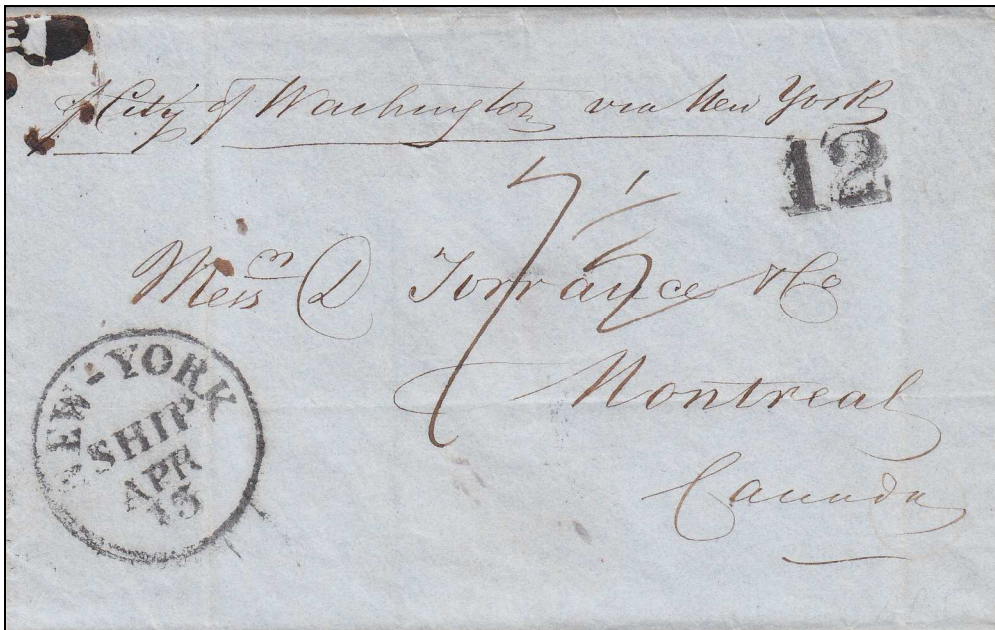 p City of Washington via New York
12
7 1/2
Messrs D Torrance & Co
Montreal
Canada
NEW-YORK
SHIP
APR
13